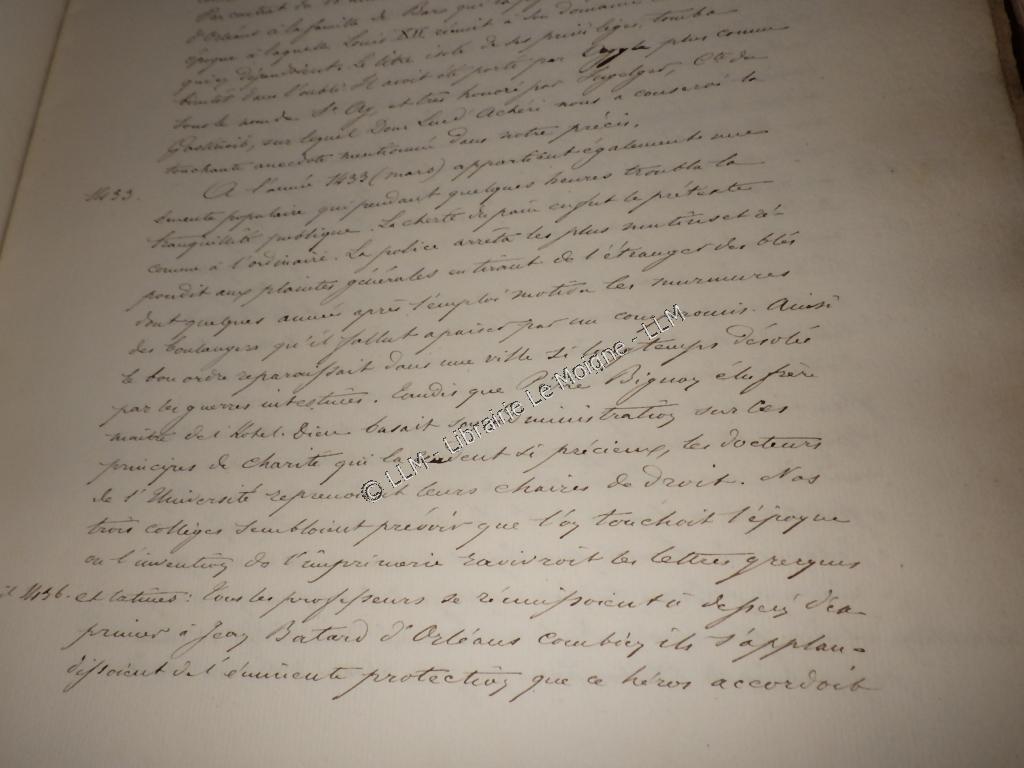 d'Orléans à la famille de
époque à laquelle Louis XII réunit à son domaine
qui y dépendoient. Le titre isolé de ses privilèges, tomba
bientôt dans l'oubli. Il avoit été porté par plus connu
sous le nom de St Ay, et très honoré par Cte de
sur lequel Dom Luc d'Achéri nous a conservé la
touchante anecdote mentionnée dans notre précis.
1433. A l'année 1433 (mars) appartient également une
émeute populaire qui pendant quelques heures troubla la
tranquillité publique. La cherté du pain en fut le prétexte
comme à l'ordinaire. La police arrêta les plus mutins et ré-
pondit aux plaintes générales en tirant de l'étranger des blés
dont quelques années après l'emploi motiva les murmures
des boulangers qu'il fallut apaiser par un compromis. Ainsi
le bon ordre reparoissait dans une ville si longtemps désolée
par les guerres intestines. Tandis que Bignon élu frère
maître de l'hôtel-Dieu basait son administration sur ces
principes de charité qui la si précieux, les docteurs
de l'Université reprenoient leurs chaires de droit. Nos
trois collèges sembloient prévoir que l'on touchoit l'époque
où l'invention de l'imprimerie ravivroit les lettres grecques
1436. et latines: tous les professeurs se réunissoient à dessein d'ex-
primer à Jean Batard d'Orléans combien ils s'applau-
dissoient de l'éminente protection que ce héros accordoit
© LLM - Librairie Le Moigne - LLM